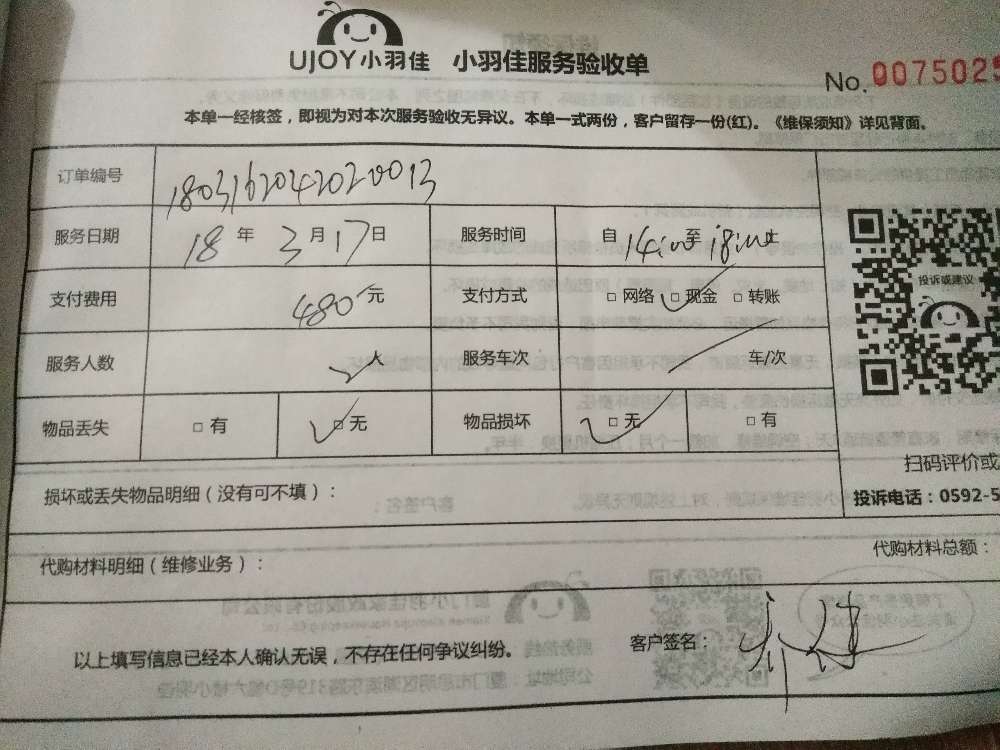 UJOY小羽佳 小羽佳服务验收单
No. 0075025
本单一经核签，即视为对本次服务验收无异议。本单一式两份，客户留存一份(红)。《维保须知》详见背面。
订单编号 180316204202 0013
服务日期 18 年 3 月 17 日 服务时间 自 14:00 至 18:00 止
支付费用 480 元 支付方式 □ 网络 □ 现金 □ 转账
服务人数 人 服务车次 车/次
物品丢失 □ 有 □ 无 物品损坏 □ 无 □ 有
投诉或建议
扫码评价或
投诉电话：0592-5
损坏或丢失物品明细（没有可不填）：
代购材料明细（维修业务）：
代购材料总额：
以上填写信息已经本人确认无误，不存在任何争议纠纷。
客户签名：